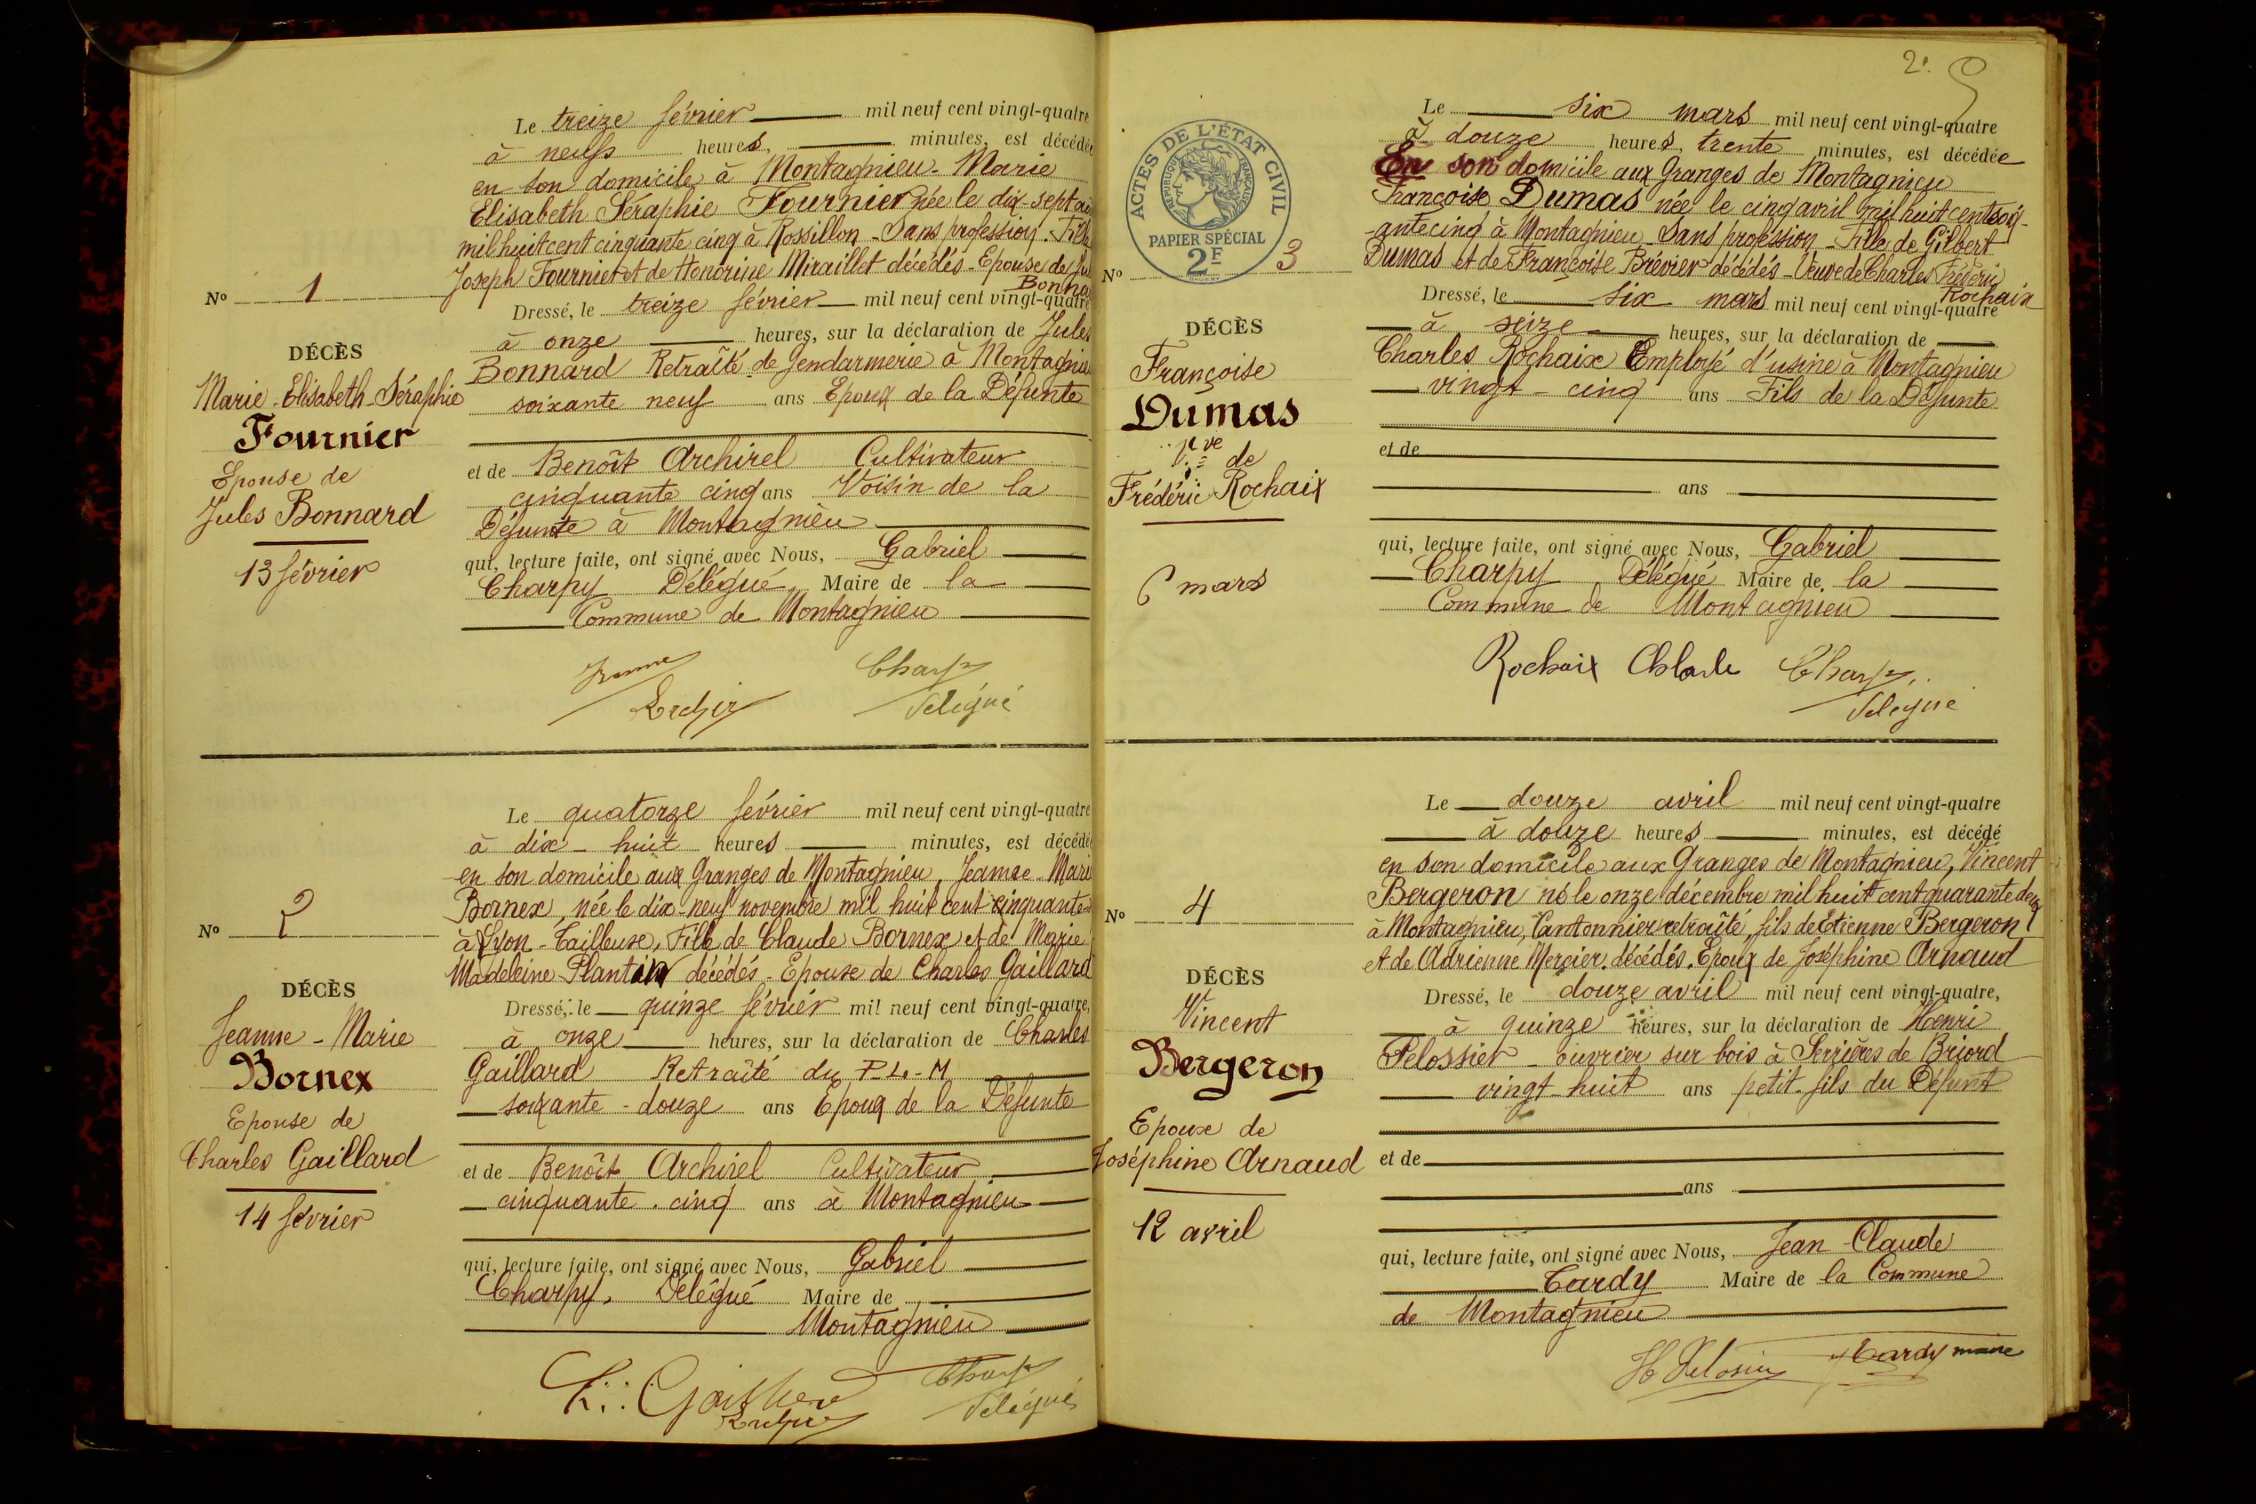 Le treize février mil neuf cent vingt-quatre
à neuf heures, minutes, est décédée
en son domicile à Montagnieu - Marie
Elisabeth Séraphie Fournier née le dix-sept
mil huit cent cinquante cinq à Rossillon - Sans profession. Fille
Joseph Fournier et de Honorine Miraillet décédés - Epouse de
Bonna
Nº 1
Dressé, le treize février mil neuf cent vingt-quatre
à onze heures, sur la déclaration de Jules
Bonnard Retraité de Gendarmerie à Montagnieu
soixante neuf ans Epoux de la Défunte
et de Benoît Archirel Cultivateur
cinquante cinq ans Voisin de la
Défunte à Montagnieu
qui, lecture faite, ont signé avec Nous, Gabriel
Charpy Délégué Maire de la
Commune de Montagnieu
DÉCÈS
Marie-Elisabeth-Séraphie
Fournier
Epouse de
Jules Bonnard
13 février
Charpy
Délégué
Le quatorze février mil neuf cent vingt-quatre
à dix-huit heures minutes, est décédée
en son domicile aux Granges de Montagnieu, Jeanne-Marie
Bornex, née le dix-neuf novembre mil huit cent cinquante
à Lyon - Tailleuse, Fille de Claude Bornex et de Marie
Madeleine Plantin décédés - Epouse de Charles Gaillard
Nº 2
Dressé, le quinze février mil neuf cent vingt-quatre,
à onze heures, sur la déclaration de Charles
Gaillard Retraité du P-L-M
soixante-douze ans Epoux de la Défunte
et de Benoît Archirel Cultivateur
cinquante-cinq ans à Montagnieu
qui, lecture faite, ont signé avec Nous, Gabriel
Charpy, Délégué Maire de
Montagnieu
DÉCÈS
Jeanne-Marie
Bornex
Epouse de
Charles Gaillard
14 février
Charpy
Délégué
2.
ACTES DE L'ÉTAT CIVIL
RÉPUBLIQUE FRANÇAISE
PAPIER SPÉCIAL
2E
Le six mars mil neuf cent vingt-quatre
à douze heures, trente minutes, est décédée
En son domicile aux Granges de Montagnieu
Françoise Dumas née le cinq avril mil huit cent soix-
-ante cinq à Montagnieu - Sans profession - Fille de Gilbert
Dumas et de Françoise Brévier décédés - Veuve de Charles Frédéric
Rochaix
Nº 3
Dressé, le six mars mil neuf cent vingt-quatre
à seize heures, sur la déclaration de
Charles Rochaix Employé d'usine à Montagnieu
vingt-cinq ans Fils de la Défunte
et de
ans
qui, lecture faite, ont signé avec Nous, Gabriel
Charpy Délégué Maire de la
Commune de Montagnieu
DÉCÈS
Françoise
Dumas
Vve de
Frédéric Rochaix
6 mars
Rochaix Charle Charpy
Délégué
Le douze avril mil neuf cent vingt-quatre
à douze heures minutes, est décédé
en son domicile aux Granges de Montagnieu, Vincent
Bergeron né le onze décembre mil huit cent quarante deux
à Montagnieu, Cantonnier retraité, fils de Etienne Bergeron
et de Adrienne Mercier. décédés. Epoux de Joséphine Arnaud
Nº 4
Dressé, le douze avril mil neuf cent vingt-quatre,
à quinze heures, sur la déclaration de Henri
Pelossier - ouvrier sur bois à Serrières de Briord
vingt-huit ans petit-fils du Défunt
et de
ans
qui, lecture faite, ont signé avec Nous, Jean-Claude
Tardy Maire de la Commune
de Montagnieu
DÉCÈS
Vincent
Bergeron
Epoux de
Joséphine Arnaud
12 avril
Tardy maire